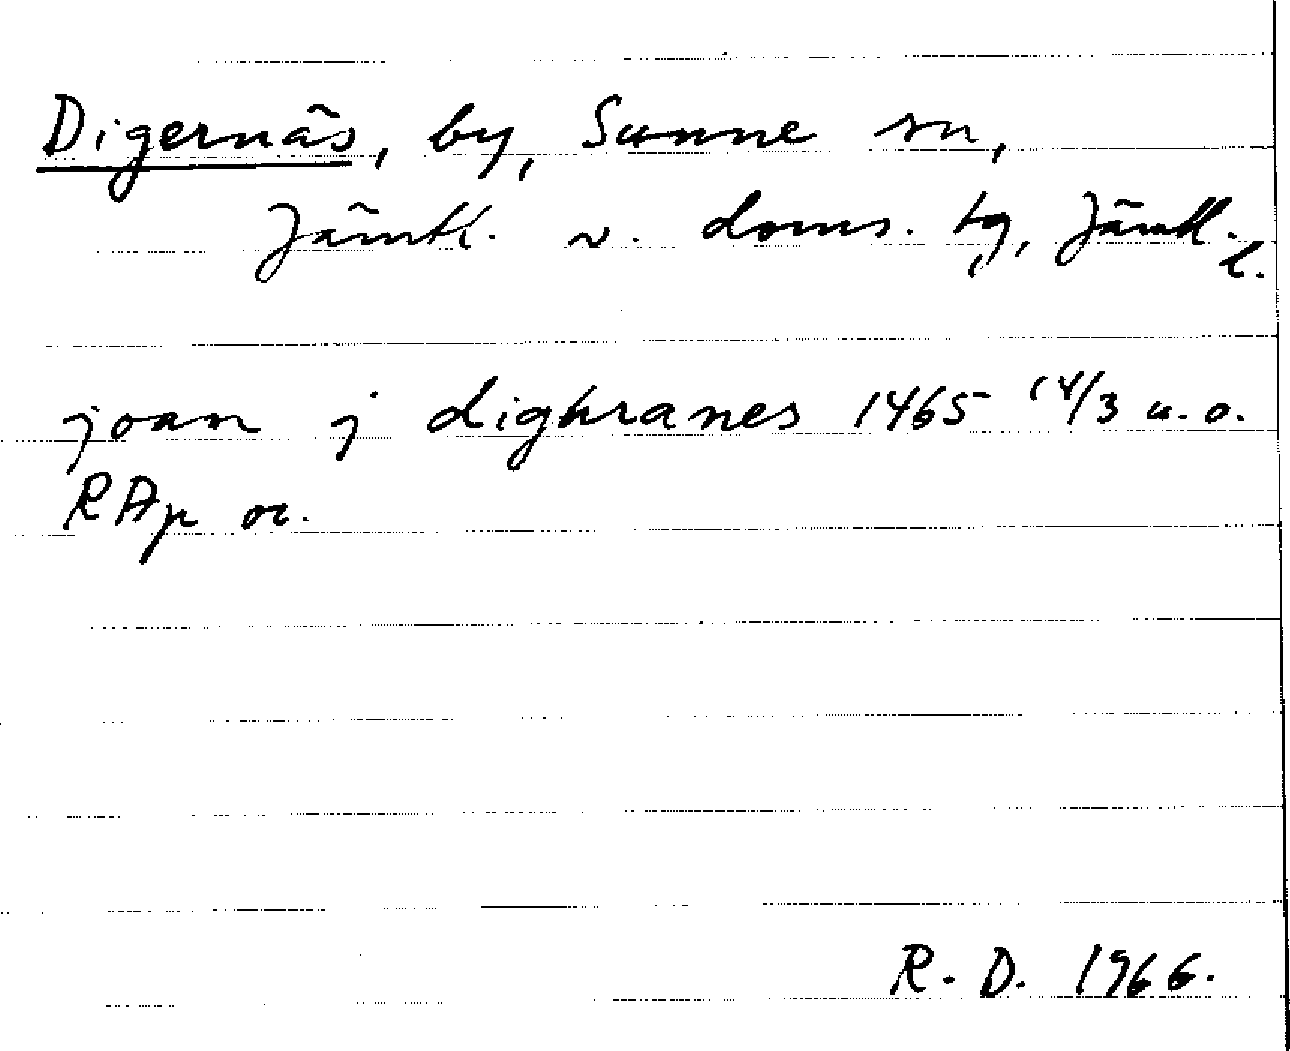 Digernäs, by, Sunne sn,
Jämtl. v. doms. tg, Jämtl. l.
joan j dighranes 1465 14/3 u.o.
RAp or.
R. D. 1966.